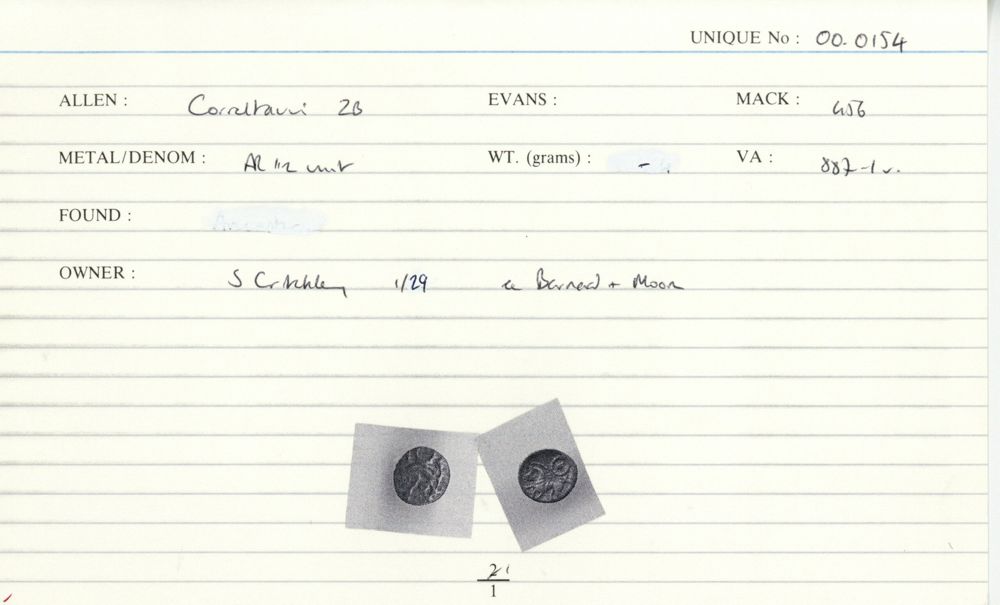 UNIQUE No : 00.0154
ALLEN : Correltauvi 2B EVANS : MACK : 456
METAL/DENOM : AR 1/2 unit WT. (grams) : - VA : 887-1 v.
FOUND :
OWNER : S Critchley 1/29 Barnard + Moon
2
1